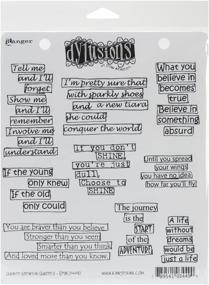 Ranger
Dylusions
Tell me
and I'll
forget
Show me
and I'll
remember
Involve me
and I'll
understand
I'm pretty sure that
with sparkly shoes
and a new tiara
she could
conquer the world
What you
believe in
becomes
true
Believe in
something
absurd
If you don't
SHINE
you're just
dull
Choose to
SHINE
If the young
only knew
If the old
only could
Until you spread
your wings
you have no idea
how far you'll fly
You are braver than you believe
Stronger than you seem
Smarter than you think
And loved more than you know
The journey
is the
START
of the
ADVENTURE
A life
without
dreams
would be
just a life